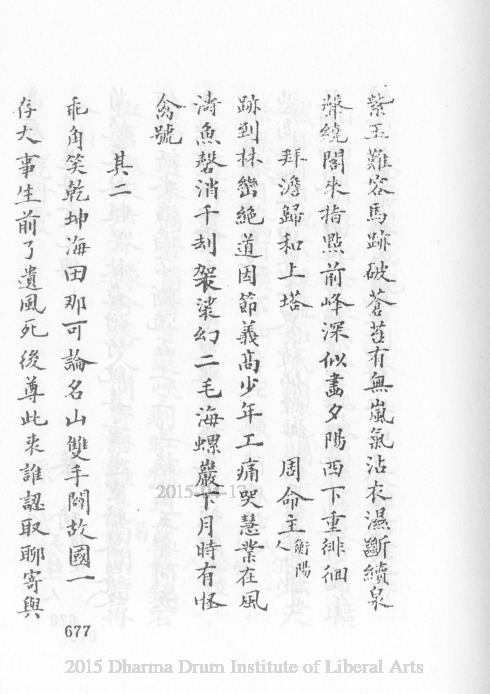 紫玉難容馬跡破蒼苔有無嵐氣沾衣濕斷續泉
聲繞閣來指點前峰深似畫夕陽西下重徘徊
拜澹歸和上塔 周命主衡陽人
跡到林巒絕道因節義高少年工痛哭慧業在風
濤魚磬消千刦袈裟幻二毛海螺巖下月時有怪
禽號
其二
乖角笑乾坤海田那可論名山雙手闢故國一
存大事生前了遺風死後尊此來誰認取聊寄與
677
2015-04-17
2015 Dharma Drum Institute of Liberal Arts